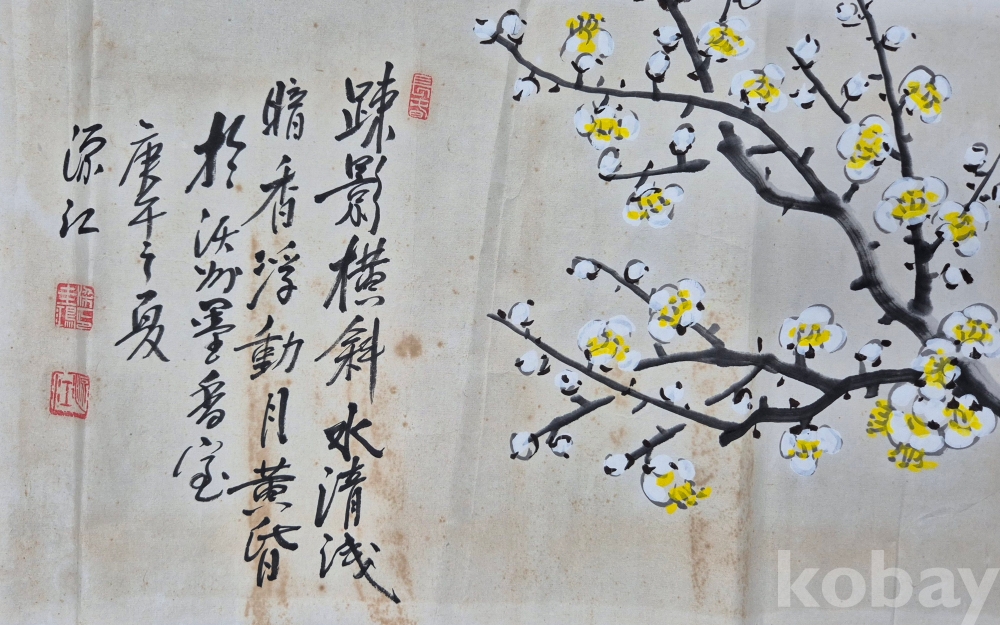 疎影橫斜水清浅
暗香浮動月黃昏
於沃州墨香室
庚午之夏
源江
kobay